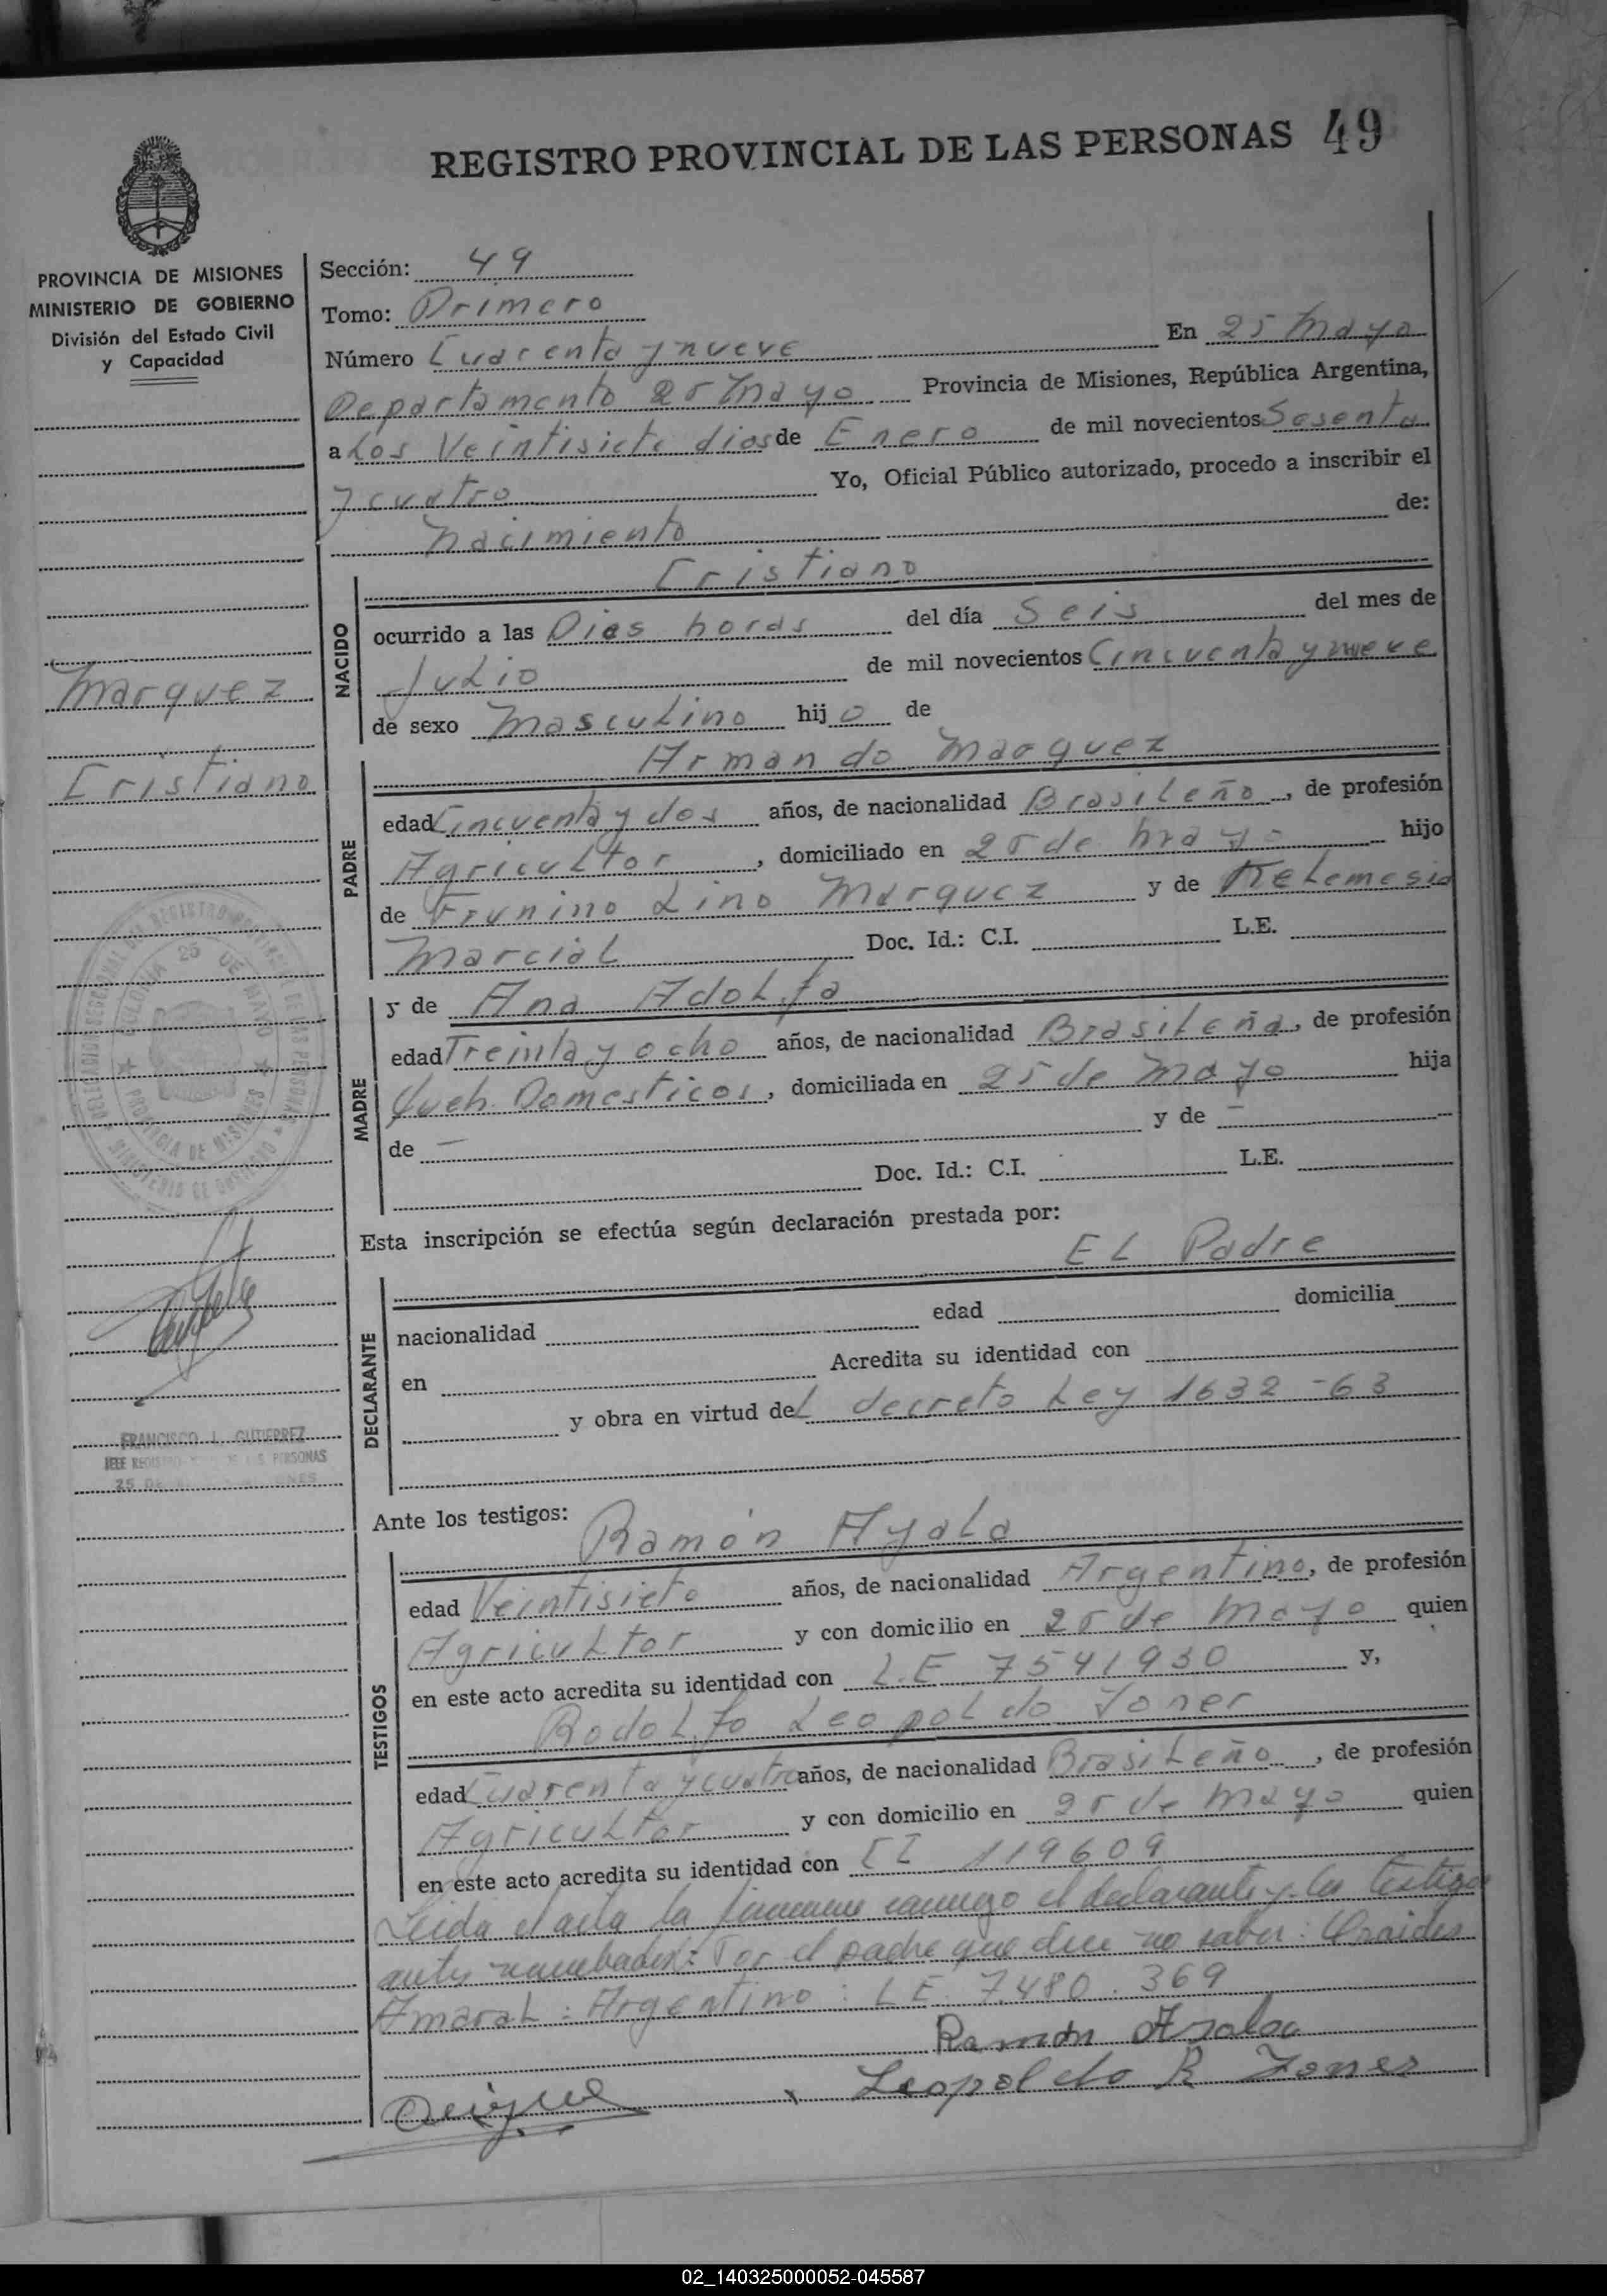 REGISTRO PROVINCIAL DE LAS PERSONAS 49
PROVINCIA DE MISIONES
MINISTERIO DE GOBIERNO
División del Estado Civil
y Capacidad
Marquez
Cristiano
COLONIA 25 DE MAYO
PROVINCIA DE MISIONES
FRANCISCO L. GUTIERREZ
Sección: 49
Tomo: Primero
Número Cuarenta y nueve En 25 Mayo
Departamento 25 Mayo Provincia de Misiones, República Argentina,
a Los Veintisiete dias de Enero de mil novecientos Sesenta
y cuatro Yo, Oficial Público autorizado, procedo a inscribir el
Nacimiento de:
NACIDO
Cristiano
ocurrido a las Dies horas del día Seis del mes de
Julio de mil novecientos Cincuenta y nueve
de sexo Masculino hijo de
PADRE
Armando Marquez
edad Cincuenta y dos años, de nacionalidad Brasileño, de profesión
Agricultor, domiciliado en 25 de Mayo hijo
de Lino Marquez y de
Marcial Doc. Id.: C.I. L.E.
MADRE
y de Ana Adolfa
edad Treinta y ocho años, de nacionalidad Brasileña, de profesión
Queh. Domesticos, domiciliada en 25 de Mayo hija
de — y de —
Doc. Id.: C.I. L.E.
Esta inscripción se efectúa según declaración prestada por:
DECLARANTE
EL Padre
nacionalidad edad domicilia
en Acredita su identidad con
y obra en virtud deL decreto Ley 1632-63
Ante los testigos:
TESTIGOS
Ramón Ayala
edad Veintisiete años, de nacionalidad Argentino, de profesión
Agricultor y con domicilio en 25 de Mayo quien
en este acto acredita su identidad con L.E 7541930 y,
Rodolfo Leopoldo Joner
edad Cuarenta y cuatro años, de nacionalidad Brasileño, de profesión
Agricultor y con domicilio en 25 de Mayo quien
en este acto acredita su identidad con CI 119609
Leida el acta la conmigo el declarante y los testigos
antes Por el padre que dice no saber:
Amaral: Argentino: LE. 7.480.369
Ramón Ayala
x Leopoldo R Joner
02_140325000052-045587